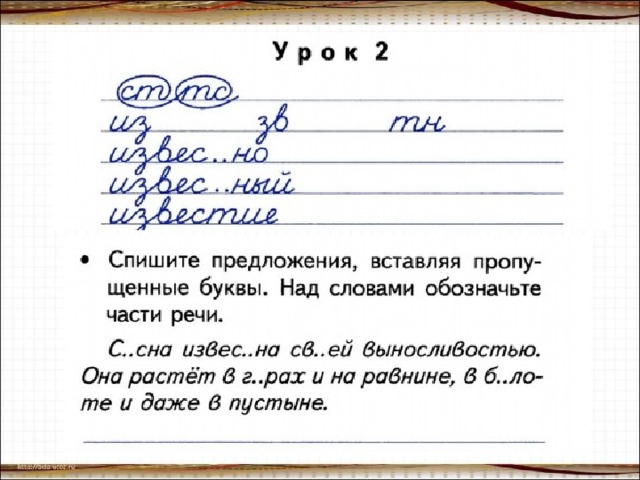 Урок 2
ст тс
из зв тн
извес..но
извес..ный
известие
• Спишите предложения, вставляя пропу-
щенные буквы. Над словами обозначьте
части речи.
С..сна извес..на св..ей выносливостью.
Она растёт в г..рах и на равнине, в б..ло-
те и даже в пустыне.